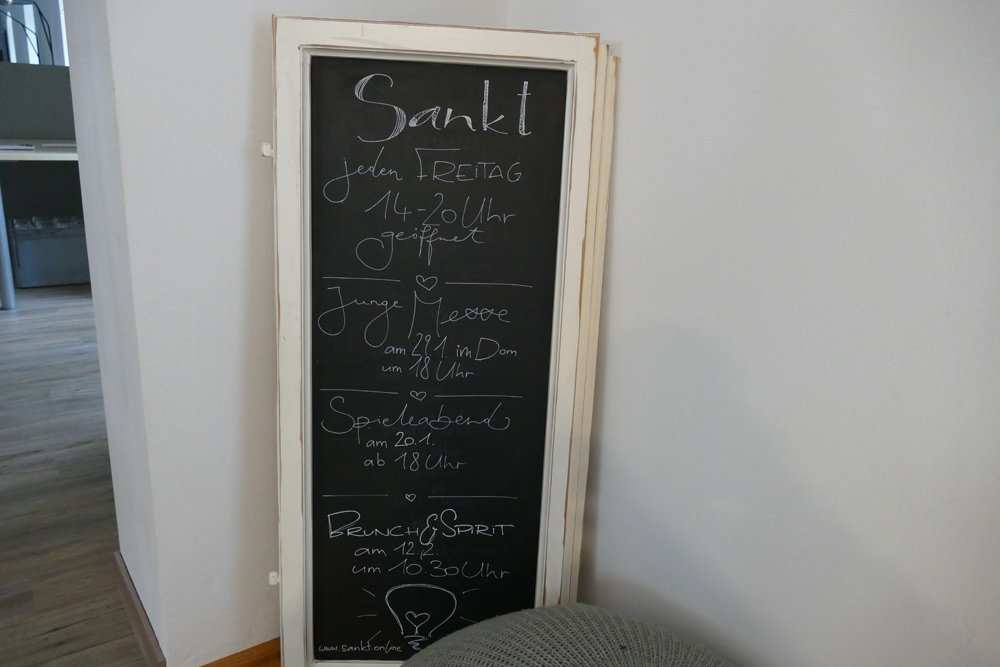 Sankt
jeden FREITAG
14-20 Uhr
geöffnet
Junge Messe
am 29.1. im Dom
um 18 Uhr
Spieleabend
am 20.1.
ab 18 Uhr
BRUNCH & SPIRIT
am 12.2.
um 10.30 Uhr
www.sankt.online